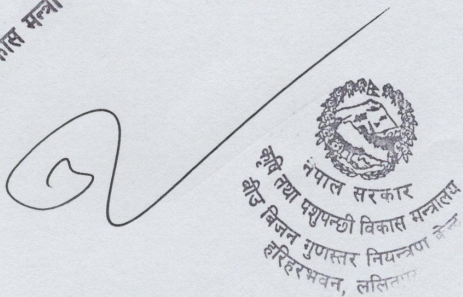 नेपाल सरकार
कृषि तथा पशुपन्छी विकास मन्त्रालय
बीउ बिजन गुणस्तर नियन्त्रण केन्द्र
हरिहरभवन,